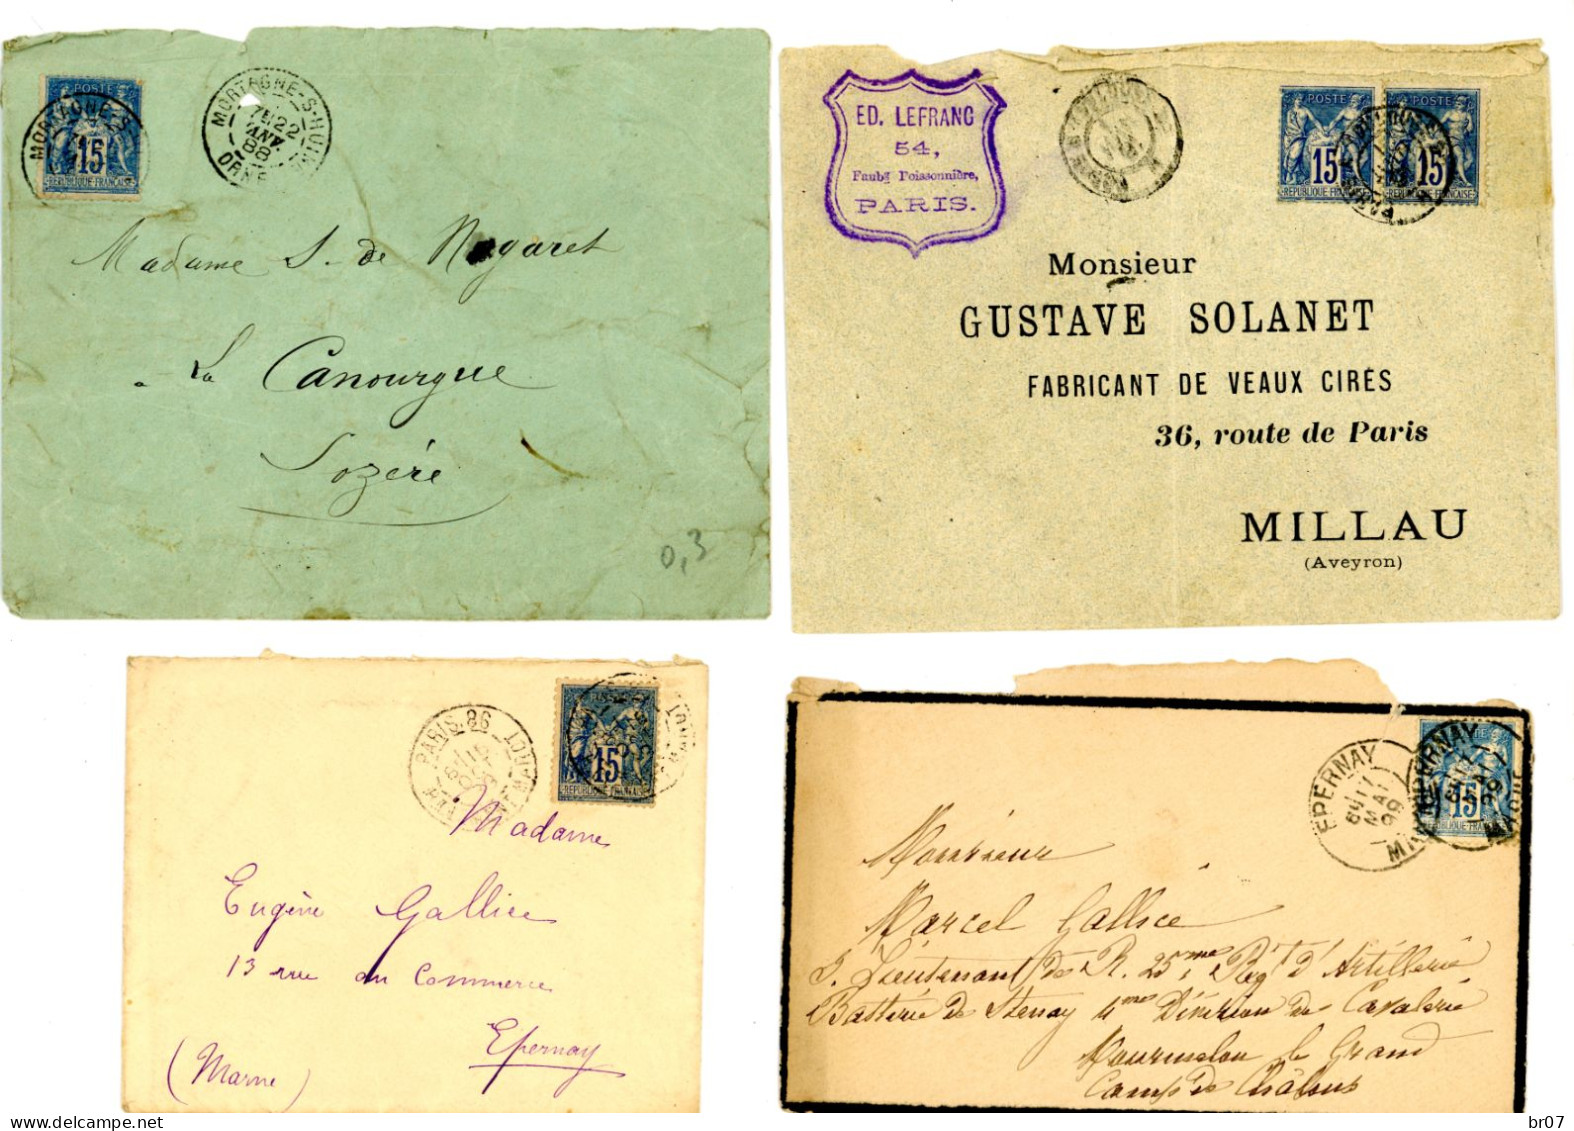 POSTE
15
REPUBLIQUE FRANÇAISE
MORTAGNE-S-HUIN
7E 22
JANV
88
ORNE
Madame S. de Nogaret
a La Canourgue
Lozère
0,3
ED. LEFRANC
54,
Faubg Poissonnière,
PARIS.
POSTE POSTE
15 15
REPUBLIQUE FRANÇAISE REPUBLIQUE FRANÇAISE
Monsieur
GUSTAVE SOLANET
FABRICANT DE VEAUX CIRÉS
36, route de Paris
MILLAU
(Aveyron)
PARIS. 86
15
REPUBLIQUE FRANÇAISE
Madame
Eugène Gallice
13 rue du Commerce
Epernay
(Marne)
EPERNAY
8E 11
MAI
99
MARNE
EPERNAY
8E 11
MAI
99
MARNE
15
Monsieur
Marcel Gallice
S. Lieutenant de R. 25me Regt d'Artillerie
Batterie de Stenay 4me Division de Cavalerie
Mourmelon le Grand
Camp de Châlons
br07